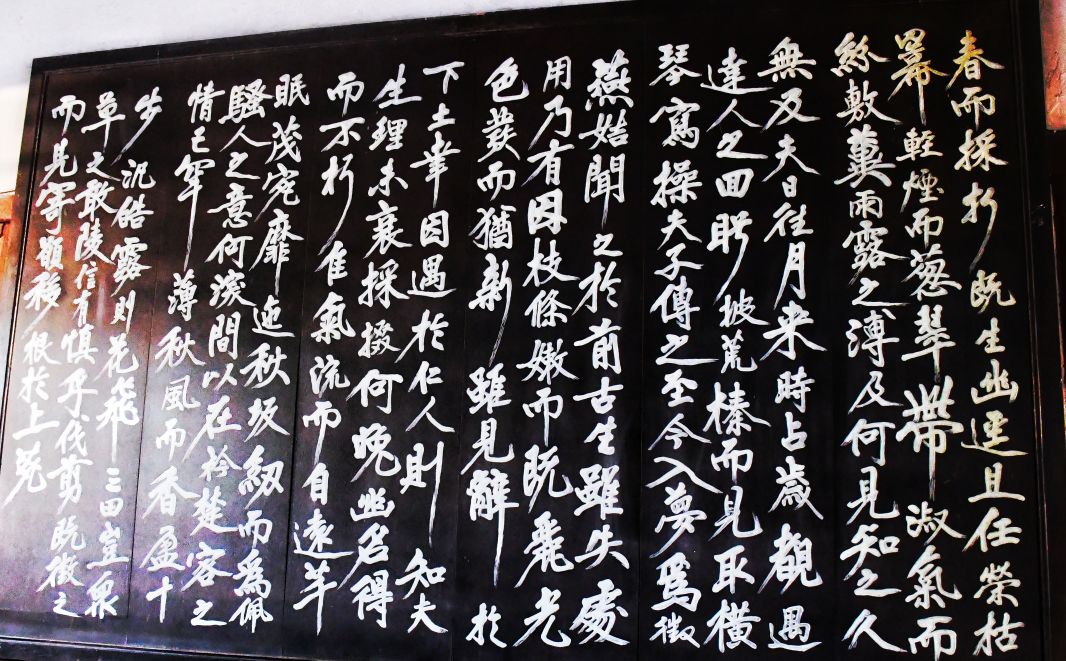 春而採折既生幽逕且任榮枯
冪輕煙而葱翠帶淑氣而
紛敷冀雨露之溥及何見知之久
無及夫日往月来時占歲觀遇
達人之回眄披荒榛而見取橫
琴寫操夫子傳之至今入夢為徵
燕姞聞之於前古生雖失處
用乃有因枝條嫩而既麗光
色發而猶新雖見辭於
下土幸因遇於仁人則知夫
生理未衰採掇何晚幽名得
而不朽佳氣流而自遠羊
眠茂宛靡迤秋坂紉而為佩
騷人之意何深間以在衿楚客之
情已罕薄秋風而香盈十
步沉皓露則花飛三田豈眾
草之敢陵信有慎乎伐剪既徵之
而見寄願移根於上苑